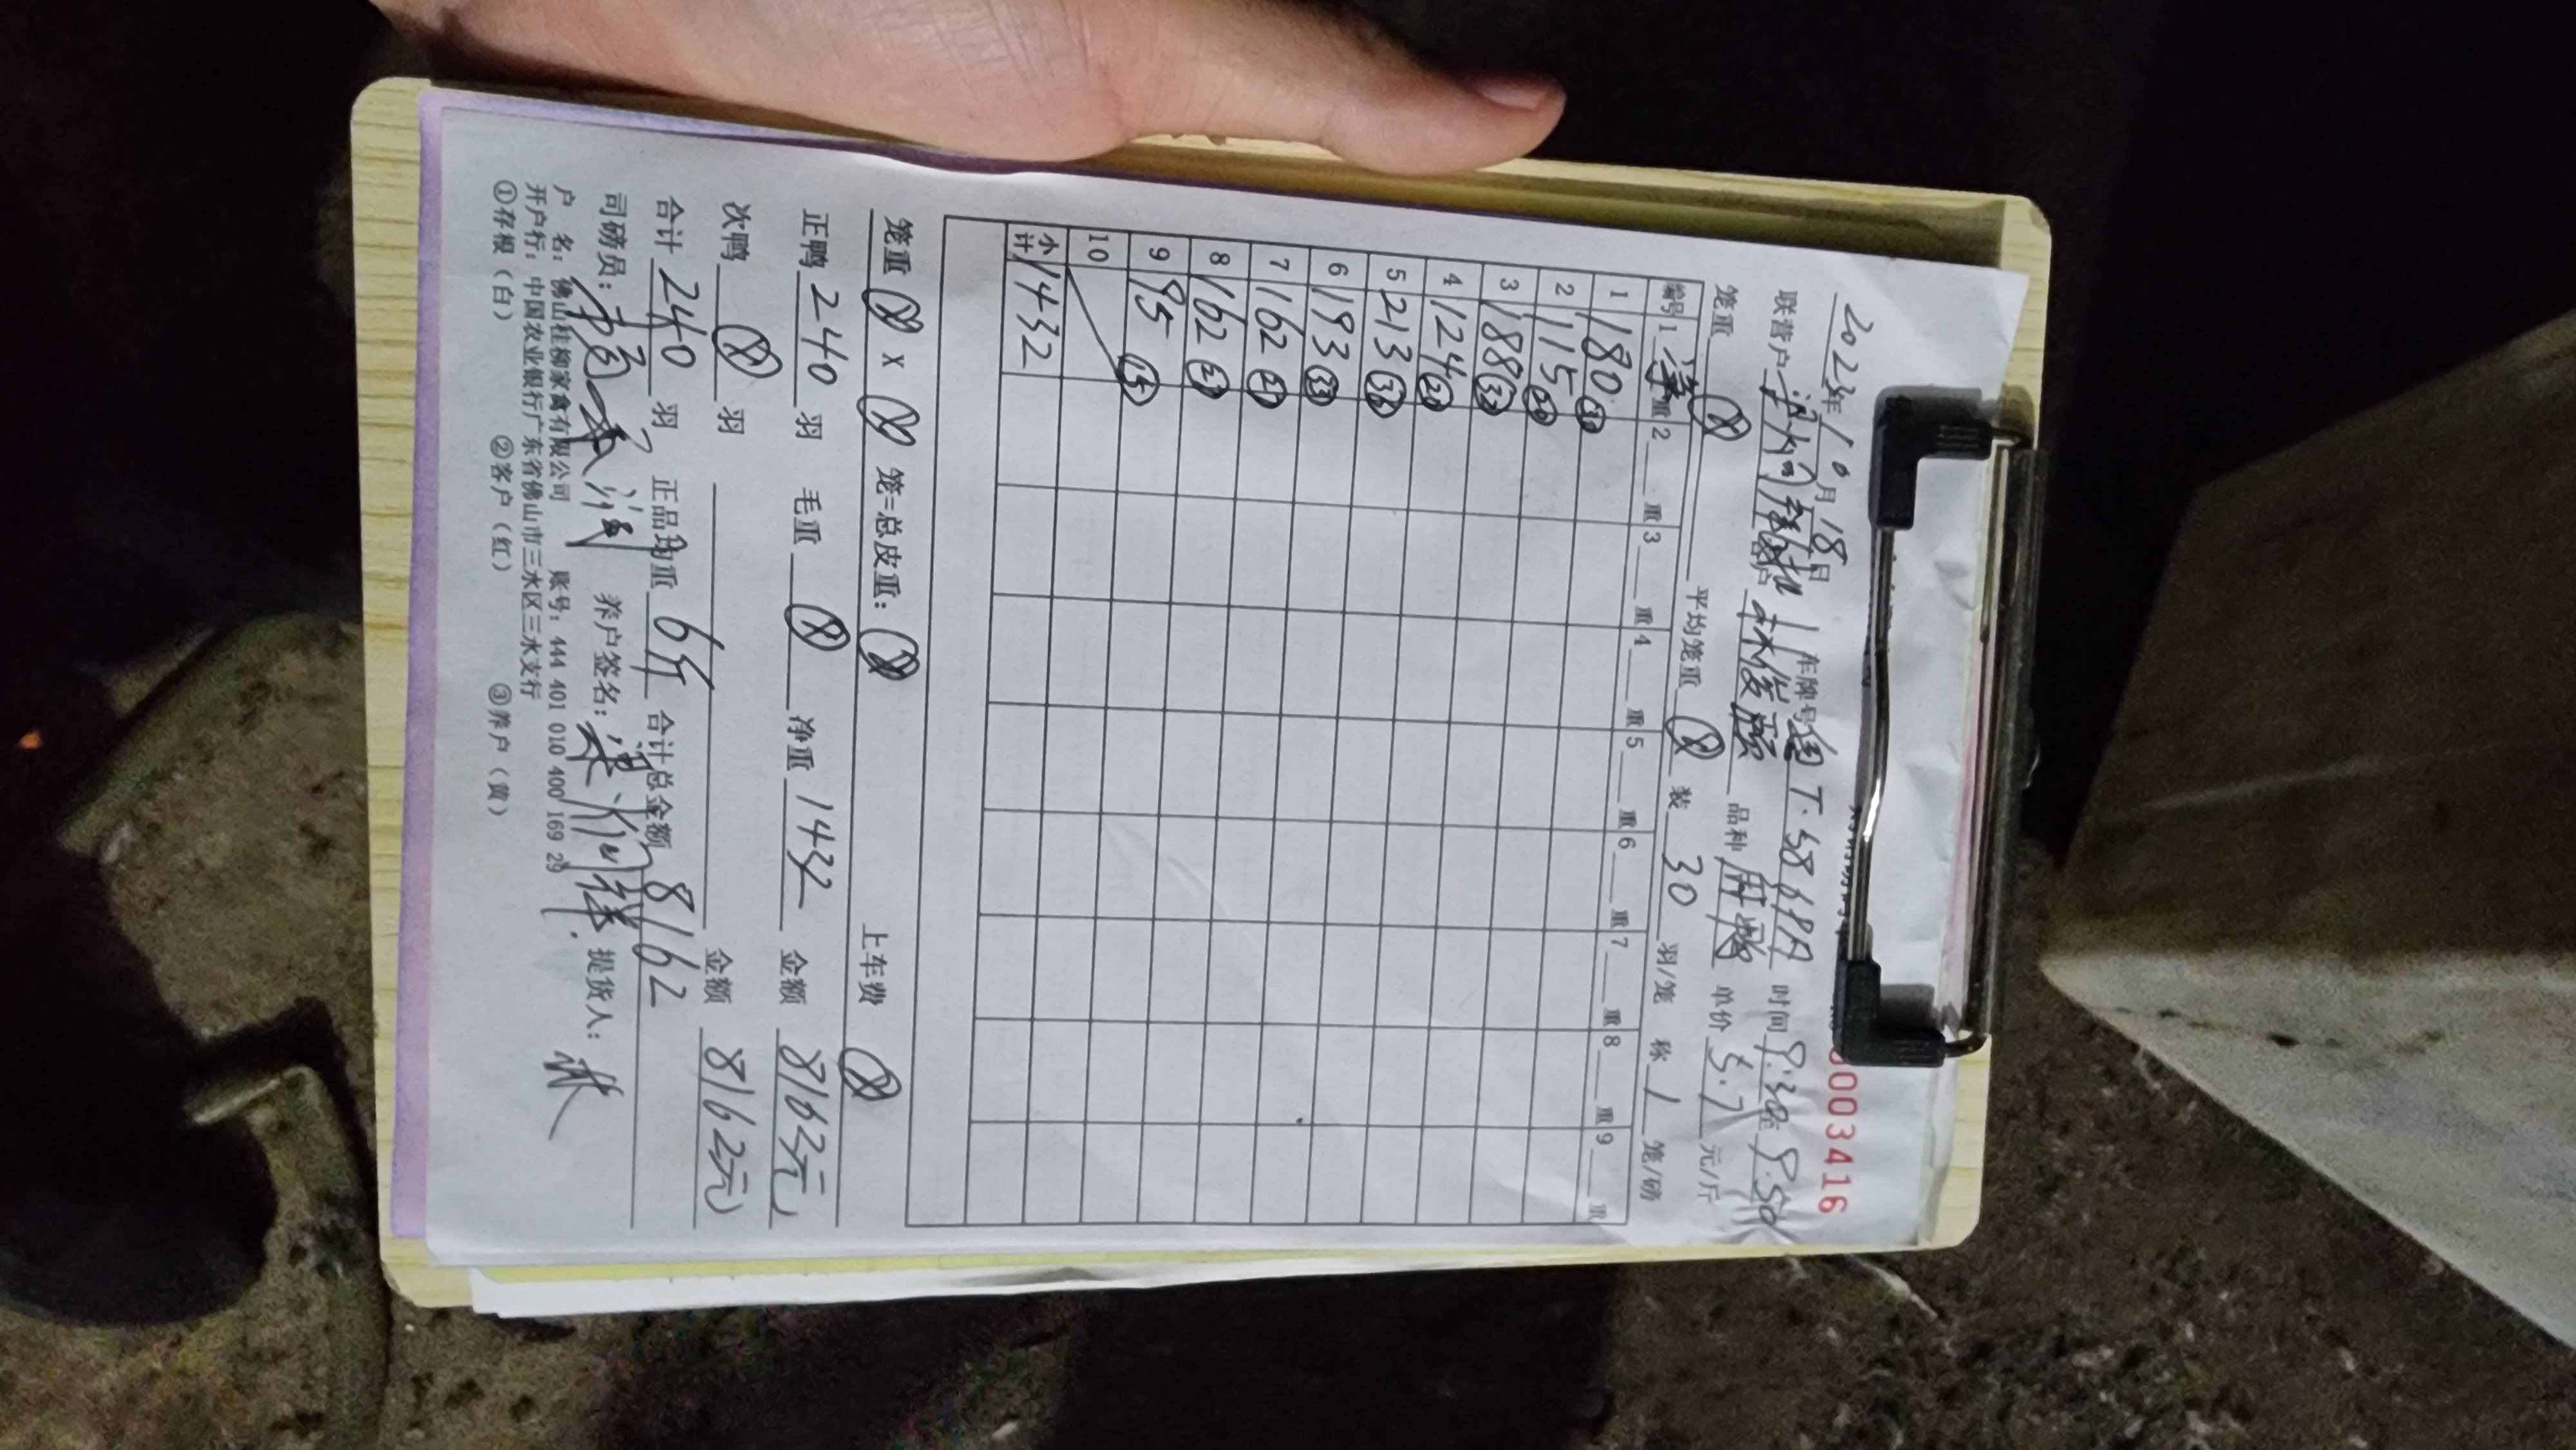 0003416
2023年10月18日 车牌号 T·S8 时间 9:30至9:50
联营户 客户 林俊 品种 麻鸭 单价 5.7 元/斤
笼重 ⊗ 平均笼重 ⊗ 装 30 羽/笼 称 1 笼/磅
编号 1 净重 2 重 3 重 4 重 5 重 6 重 7 重 8 重 9 重
1 180 30
2 115 20
3 188 32
4 124 20
5 213 36
6 193 33
7 162 27
8 162 27
9 95 15
10
小计 1432
笼重 ⊗ x ⊗ 笼=总皮重: ⊗ 上车费 ⊗
正鸭 240 羽 毛重 ⊗ 净重 1432 金额 8162元
次鸭 ⊗ 羽 金额 8162元
合计 240 羽 正品均重 6斤 合计总金额 8162
司磅员: 养户签名: 提货人: 林
户 名: 佛山桂柳家禽有限公司 账号: 444 401 010 400 169 29
开户行: 中国农业银行广东省佛山市三水区三水支行
①存根（白） ②客户（红） ③养户（黄）